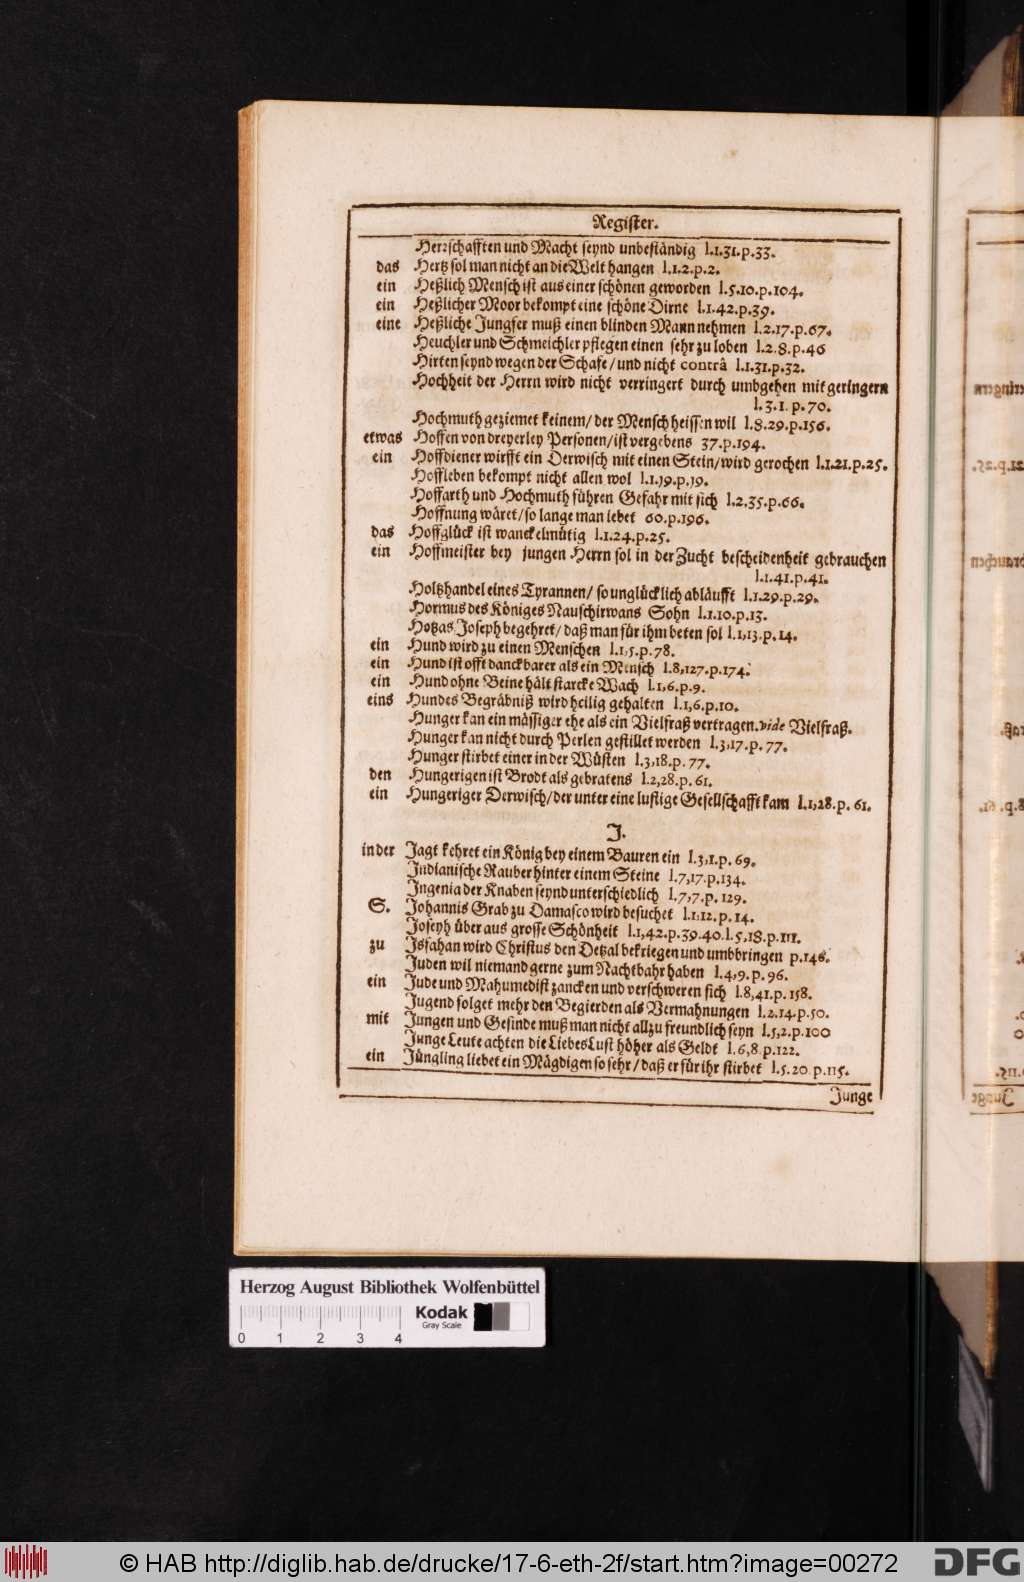 Register.
Herrschafften und Macht seynd unbeständig l.1.31.p.33.
das Hertz sol man nicht an die Welt hangen l.1.2.p.2.
ein Heßlich Mensch ist aus einer schönen geworden l.5.10.p.104.
ein Heßlicher Moor bekompt eine schöne Dirne l.1.42.p.39.
eine Heßliche Jungfer muß einen blinden Mann nehmen l.2.17.p.67.
Heuchler und Schmeichler pflegen einen sehr zu loben l.2.8.p.46
Hirten seynd wegen der Schafe/und nicht contrâ l.1.31.p.32.
Hochheit der Herrn wird nicht verringert durch umbgehen mit geringern
l.3.1.p.70.
Hochmuth geziemet keinem/der Mensch heissen wil l.8.29.p.156.
etwas Hoffen von dreyerley Personen/ist vergebens 37.p.194.
ein Hoffdiener wirfft ein Derwisch mit einen Stein/wird gerochen l.1.21.p.25.
Hoffleben bekompt nicht allen wol l.1.19.p.19.
Hoffarth und Hochmuth führen Gefahr mit sich l.2.35.p.66.
Hoffnung wäret/so lange man lebet 60.p.196.
das Hoffglück ist wanckelmütig l.1.24.p.25.
ein Hoffmeister bey jungen Herrn sol in der Zucht bescheidenheit gebrauchen
l.1.41.p.41.
Holtzhandel eines Tyrannen/ so unglücklich abläufft l.1.29.p.29.
Hormus des Königes Nauschirwans Sohn l.1.10.p.13.
Hotzas Joseph begehret/daß man für ihm beten sol l.1,13.p.14.
ein Hund wird zu einen Menschen l.1,5.p.78.
ein Hund ist offt danckbarer als ein Mensch l.8,127.p.174.
ein Hund ohne Beine hält starcke Wach l.1,6.p.9.
eins Hundes Begräbniß wird heilig gehalten l.1,6.p.10.
Hunger kan ein mässiger ehe als ein Vielfraß vertragen.vide Vielfraß.
Hunger kan nicht durch Perlen gestillet werden l.3,17.p.77.
Hunger stirbet einer in der Wüsten l.3,18.p.77.
den Hungerigen ist Brodt als gebratens l.2,28.p.61.
ein Hungeriger Derwisch/der unter eine lustige Gesellschafft kam l.1,28.p.61.
J.
in der Jagt kehret ein König bey einem Bauren ein l.3,1.p.69.
Indianische Rauber hinter einem Steine l.7,17.p.134.
Ingenia der Knaben seynd unterschiedlich l.7,7.p.129.
S. Johannis Grab zu Damasco wird besuchet l.1,12.p.14.
Joseph über aus grosse Schönheit l.1,42.p.39.40.l.5,18.p.111.
zu Isfahan wird Christus den Detzal bekriegen und umbbringen p.146.
Juden wil niemand gerne zum Nachtbahr haben l.4,9.p.96.
ein Jude und Mahumedist zancken und verschweren sich l.8,41.p.158.
Jugend folget mehr den Begierden als Vermahnungen l.2.14.p.50.
mit Jungen und Gesinde muß man nicht allzu freundlich seyn l.5,2.p.100
Junge Leute achten die Liebes Lust höher als Geldt l.6,8.p.122.
ein Jüngling liebet ein Mägdigen so sehr/daß er für ihr stirbet l.5.20.p.115.
Junge
Herzog August Bibliothek Wolfenbüttel
Kodak
Gray Scale
0 1 2 3 4
© HAB http://diglib.hab.de/drucke/17-6-eth-2f/start.htm?image=00272
DFG